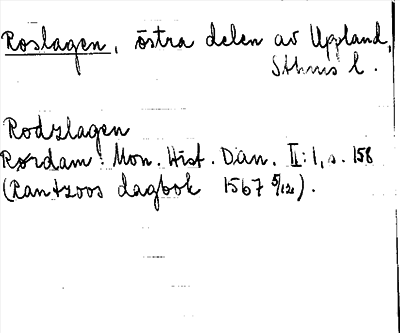 Roslagen, östra delen av Uppland,
Sthms l.
Rodzlagen
Rørdam: Mon. Hist. Dan. II:1, s. 158
(Rantzoos dagbok 1567 5/12).